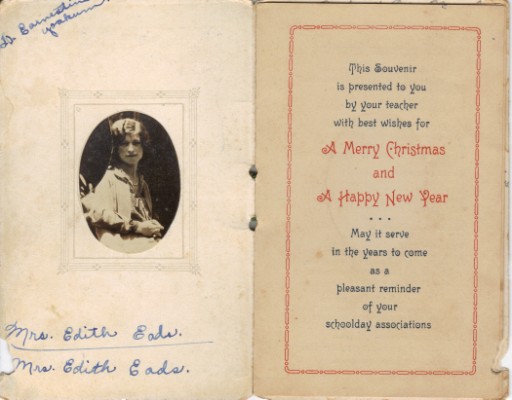 Earnestine
Yoakum.
Mrs. Edith Eads.
Mrs. Edith Eads.
This Souvenir
is presented to you
by your teacher
with best wishes for
A Merry Christmas
and
A Happy New Year
• • •
May it serve
in the years to come
as a
pleasant reminder
of your
schoolday associations